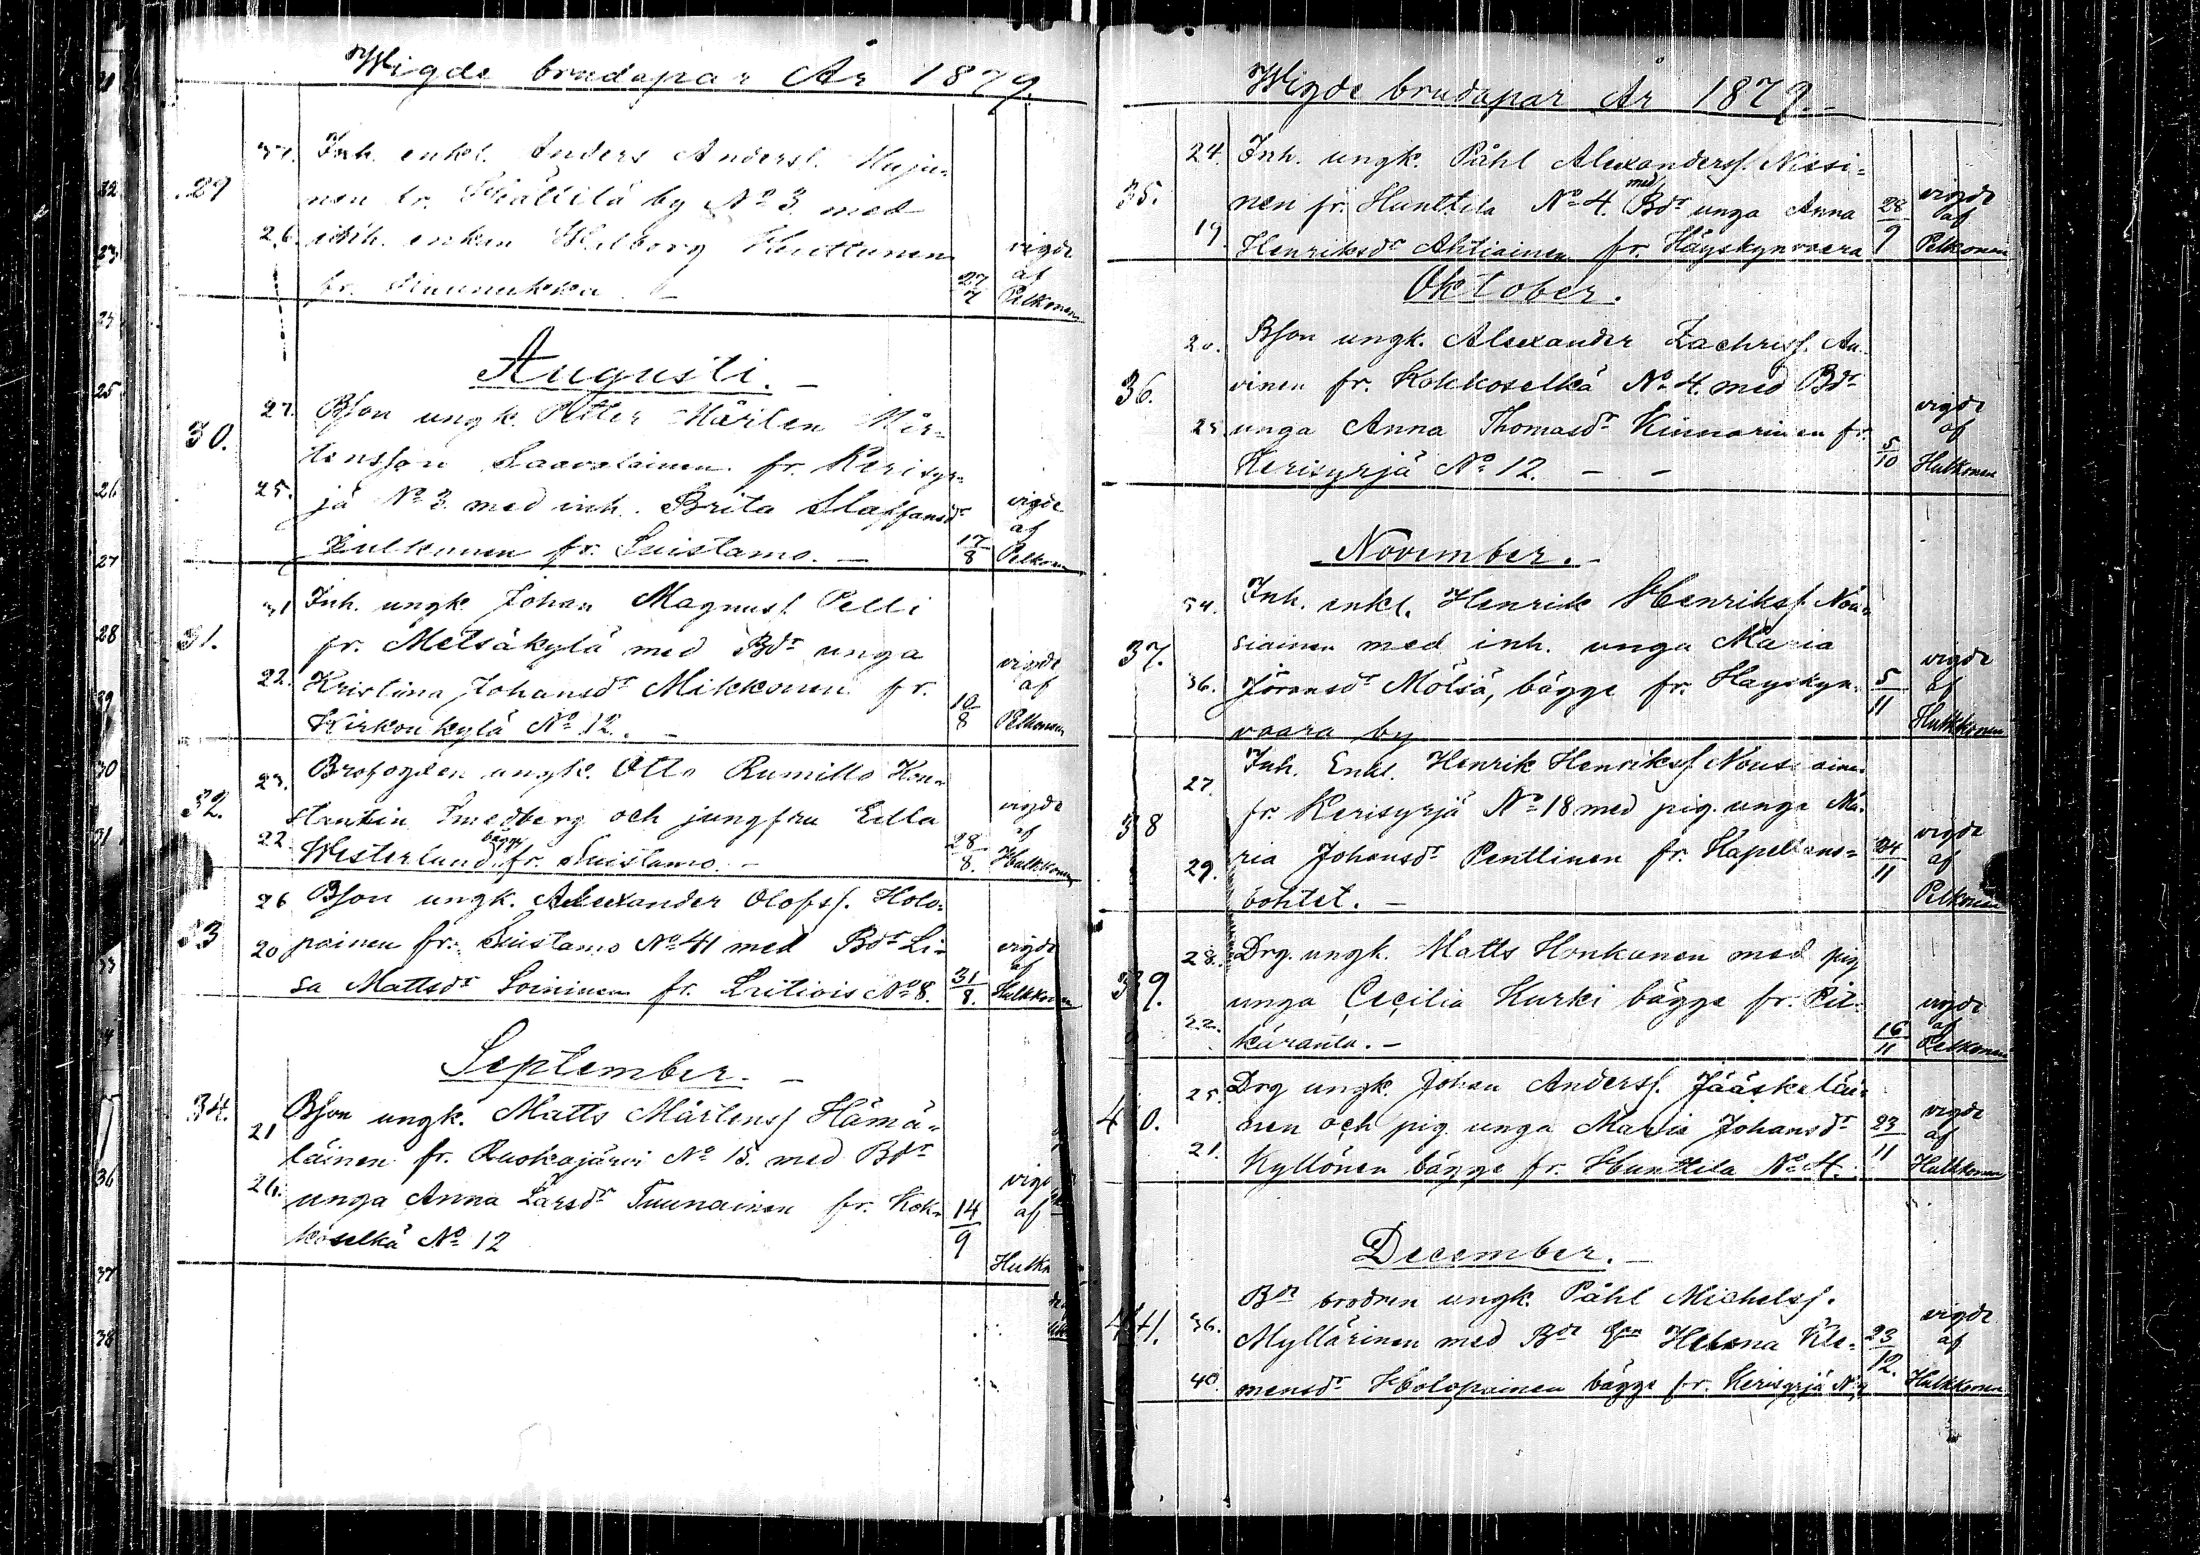 Wigde brudapar År 1879.
29
37. Inh. enkl. Anders Anders. Huju-
nen fr. by No 3. med
26 inh. enkan Walborg Kuittunen
fr.
27/7 vigde af Pelkonen
Augusti.
30.
27. Bson ungk. Petter Mårten Mår-
tensson Laavalainen fr. Kerisyr-
25. jä No 3. med inh. Brita Staffansdr
Kulkunen fr. Suistamo.
17/8 vigde af Pelkonen
31.
31 Inh. ungk. Johan Magnuss. Pelli
fr. Metsäkylä med Bdr unga
22. Kristina Johansdr Mikkonen fr.
Kirkonkylä No 12.
10/8 vigde af Pelkonen
32.
23. Brofogden ungk. Otto Rumillo Kon-
stantin Smedberg och jungfru Edla
22. Westerlund bägge fr. Suistamo.
28/8. vigde af Hulkkonen
33
26 Bson ungk. Alexander Olofss. Holo-
20 painen fr. Suistamo No 41 med Bdr Li-
sa Mattsdr Soininen fr. Leitivis No 8.
31/8. vigde af Hulkkonen
September.
34.
21 Bson ungk. Matts Mårtenss Hämä-
läinen fr. Ruokojärvi No 15. med Bdr
26. unga Anna Larsdr Tuunainen fr. Kok-
koselkä No 12
14/9 vigde af Hulkk
Wigde brudapar År 1879.
35.
24. Inh. ungk. Påhl Alexanderss. Nissi-
nen fr. Hunttila No 4. med Bdr unga Anna
19. Henriksdr Ahtiainen fr. Häyskynvaara
28/9 vigde af Pelkonen
Oktober.
36.
20. Bson ungk. Alexander Zachriss. Au-
vinen fr. Kokkoselkä No 4. med Bdr
25 unga Anna Thomasdr Kinnarinen fr.
Kerisyrjä No 12.
5/10 vigde af Hulkonen
November.
37.
54. Inh. enkl. Henrik Henrikss. Nou-
siainen med inh. unga Maria
36. Jöransdr Mölsä, bägge fr. Hayskyn-
vaara by
5/11 vigde af Hulkkonen
38
27. Inh. Enkl. Henrik Henrikss Nousiainen
fr. Kerisyrjä No 18 med pig. unga Ma-
29. ria Johansdr Penttinen fr. Kapellans-
bohlet.
24/11 vigde af Pelkonen
39.
28. Drg. ungk. Matts Honkanen med pig
unga Cecilia Kurki bägge fr. Pit-
22. käranta.
16/11 vigde af Pelkonen
40.
25. Drg ungk. Johan Anderss. Jääskeläi-
nen och pig. unga Maria Johansdr
21. Kyllönen bägge fr. Hunttila No 4.
23/11 vigde af Hulkkonen
December.
41.
36. Bdr brodren ungk. Påhl Michelss.
Myllärinen med Bdr Helena Kle-
40. mensdr Holopainen bägge fr. Kerisyrjä No 4
23/12. vigde af Hulkkonen